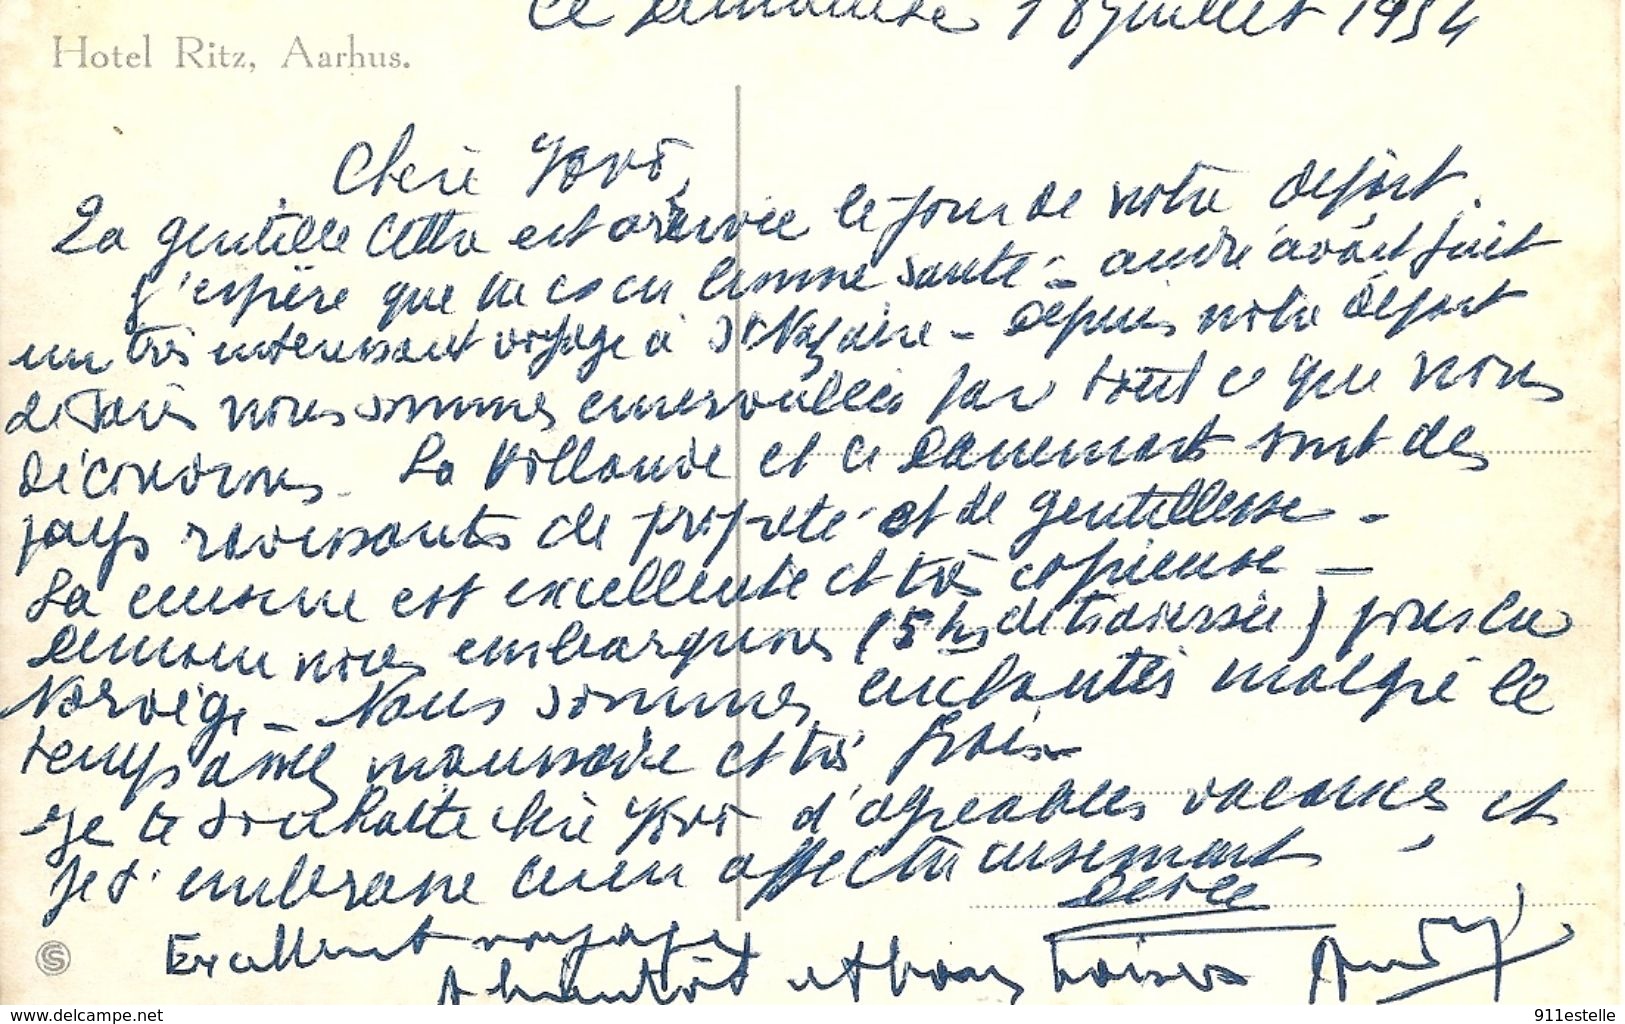 ce Dimanche 18 juillet 1954
Hotel Ritz, Aarhus.
Chère Yové,
Ta gentille lettre est arrivée le jour de notre départ.
J'espère que tu es en bonne santé - André avait fait
un très intéressant voyage à St Nazaire - Depuis notre départ
de Paris nous sommes émerveillés par tout ce que nous
découvrons. La Hollande et le Danemark sont des
pays ravissants de propreté et de gentillesse -
La cuisine est excellente et très copieuse -
Demain nous embarquons (5 hs de traversée) pour la
Norvège - Nous sommes enchantés malgré le
temps assez maussade et très frais -
Je te souhaite chère Yové d'agréables vacances et
je t'embrasse bien affectueusement
Excellent voyage
A bientôt et bons baisers André
www.delcampe.net
911estelle